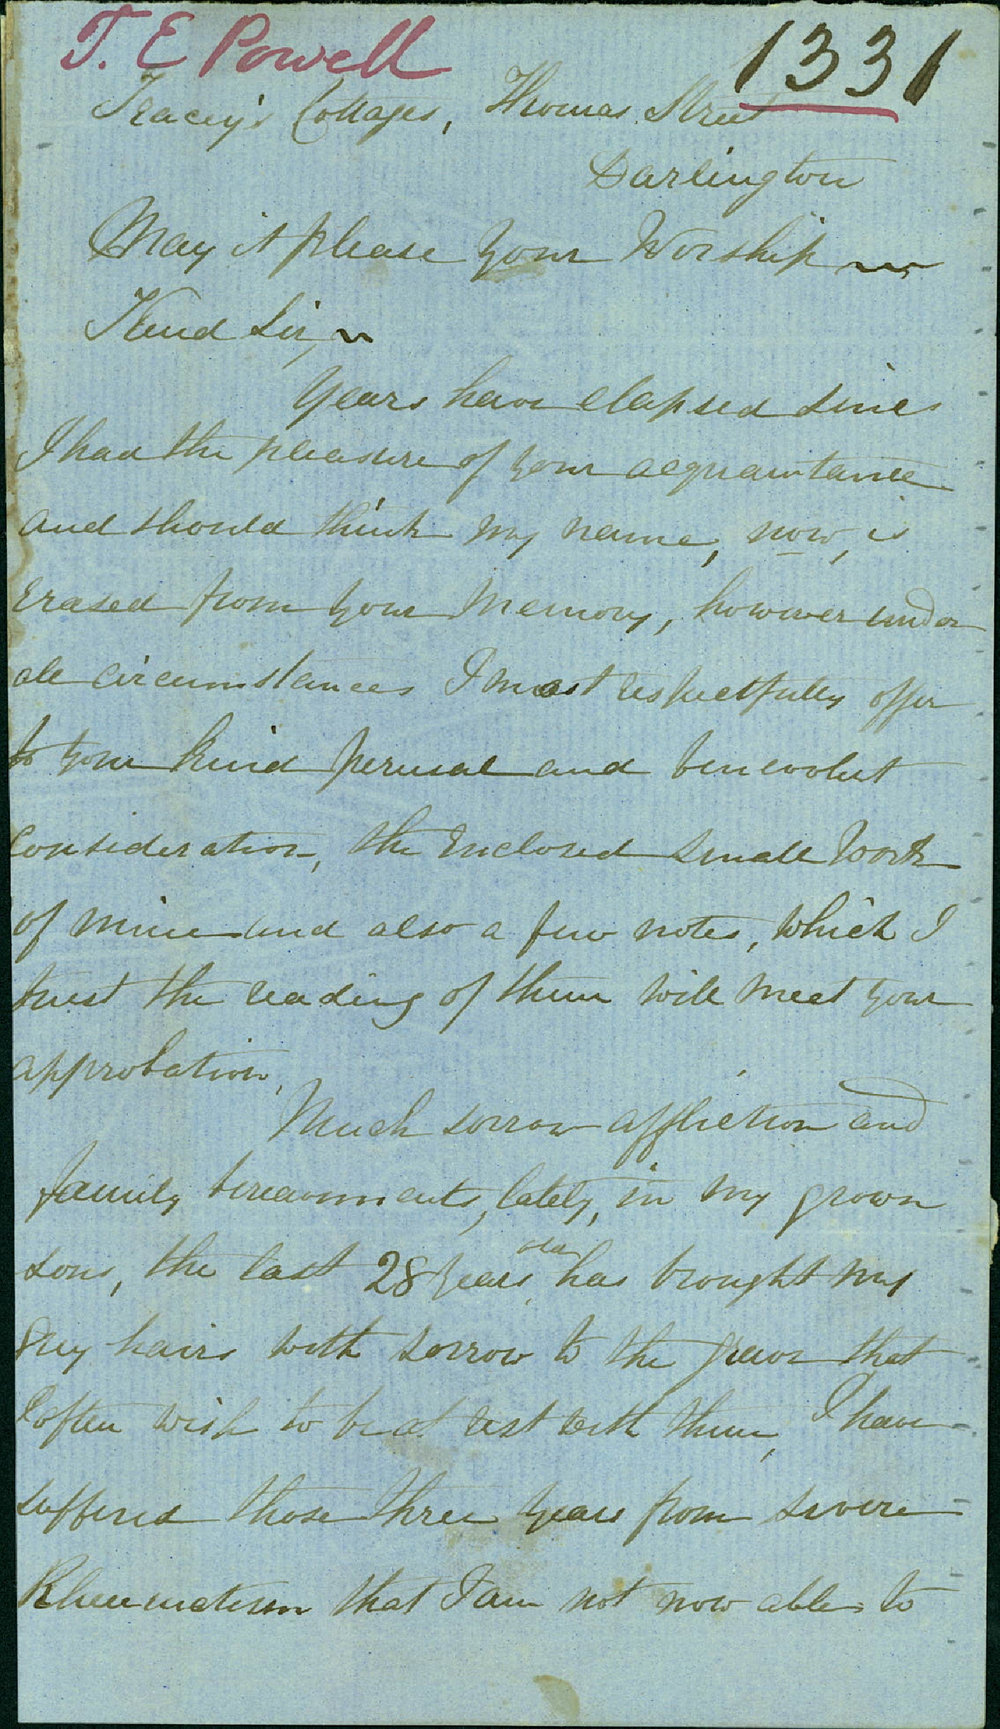 T. E Powell
1331
Tracey's Cottages, Thomas Street
Darlington
May it please your Worship
Kind Sir,
Years have elapsed since
I had the pleasure of your acquaintance
and should think my name, now, is
Erased from your Memory, however under
all circumstances I most respectfully offer
to your kind perusal and benevolent
Consideration, the Enclosed small Work
of mine and also a few notes, which I
trust the reading of them will meet your
approbation,
Much sorrow affliction and
family bereavments, lately, in my grown
sons, the last 28 years old has brought my
grey hairs with sorrow to the grave that
I often wish to be at rest with them, I have
suffered those three years from severe
Rheumatism that I am not now able to